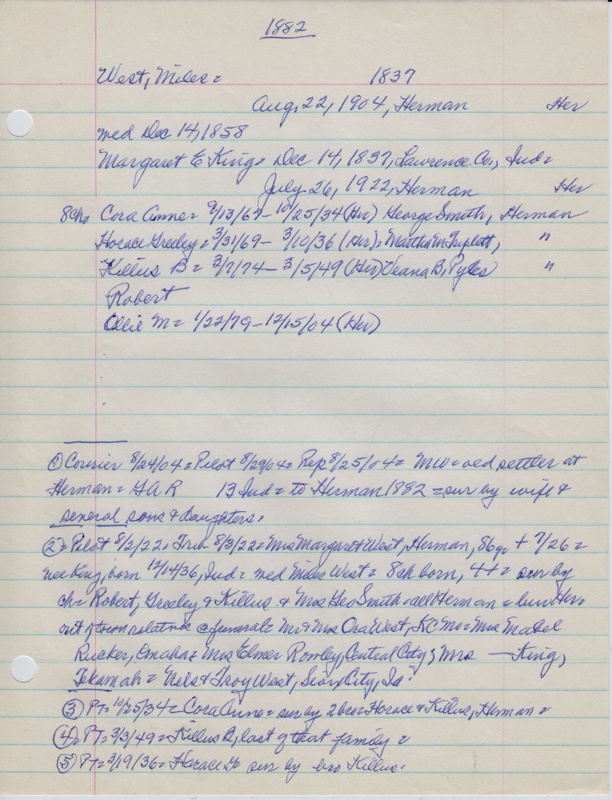 1882
West, Miles = 1837
Aug, 22, 1904, Herman Her
med Dec 14, 1858
Margaret E King = Dec 14, 1837, Lawrence Co, Ind =
July 26, 1922, Herman Her
8ch = Cora Anne = 9/13/67 - 10/25/34 (Her) George Smith, Herman
Horace Greeley = 3/31/69 - 3/10/36 (Her) = Martha M Triplett, "
Killus B = 3/7/74 - 3/5/49 (Her) Veana B, Pyles "
Robert
Ollie M = 1/22/79 - 12/15/04 (Her)
① Courier 8/24/04 = Pilot 8/29/04 = Rep 8/25/04 = MW = old settler at
Herman = GAR 13 Ind = to Herman 1882 = sur by wife &
several sons & daughters.
② = Pilot 8/2/22 = Trib 8/3/22 = Mrs Margaret West, Herman, 86 yr + 7/26 =
nee King, born 12/14/36, Ind = med Miles West = 8 ch born, 4+ = sur by
ch = Robert, Greeley & Killus & Mrs Geo Smith = all Herman = bur Her =
out of town relatives @ funeral = Mr & Mrs Ora West, KC Mo = Mrs Mabel
Rucker, Omaha = Mrs Elmer Romley, Central City; Mrs — King,
Tekamah = Nels & Troy West, Sioux City, Ia
③ PT = 10/25/34 = Cora Anne = sur by 2 bro = Horace & Killus, Herman =
④ = PT = 3/3/49 = Killus B, last of that family =
⑤ PT = 3/19/36 = Horace G sur by bro Killus.